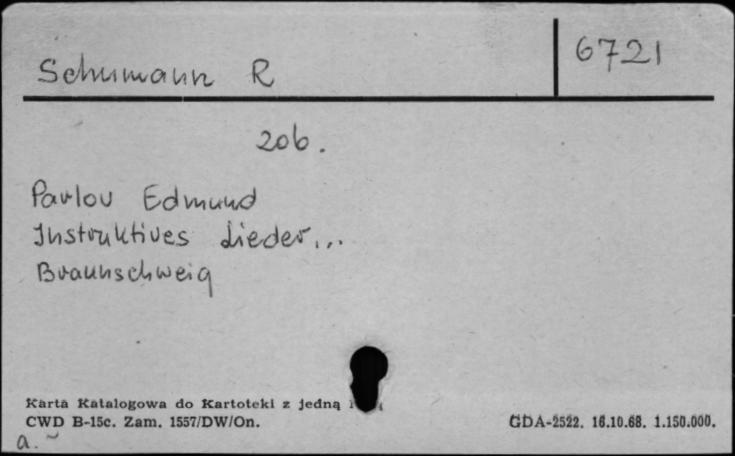 Schumann R
6721
zob.
Parlow Edmund
Instruktives Lieder...
Braunschweig
Karta Katalogowa do Kartoteki z jedną
CWD B-15c. Zam. 1557/DW/On.
GDA-2522. 16.10.68. 1.150.000.
a.